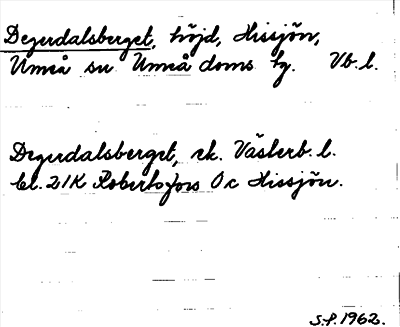 Degerdalsberget, höjd, Hissjön,
Umeå sn Umeå doms hg. Vb. l.
Degerdalsberget, ek. Västerb. l.
bl. 21K Robertsfors 0c Hissjön.
S.P. 1962.